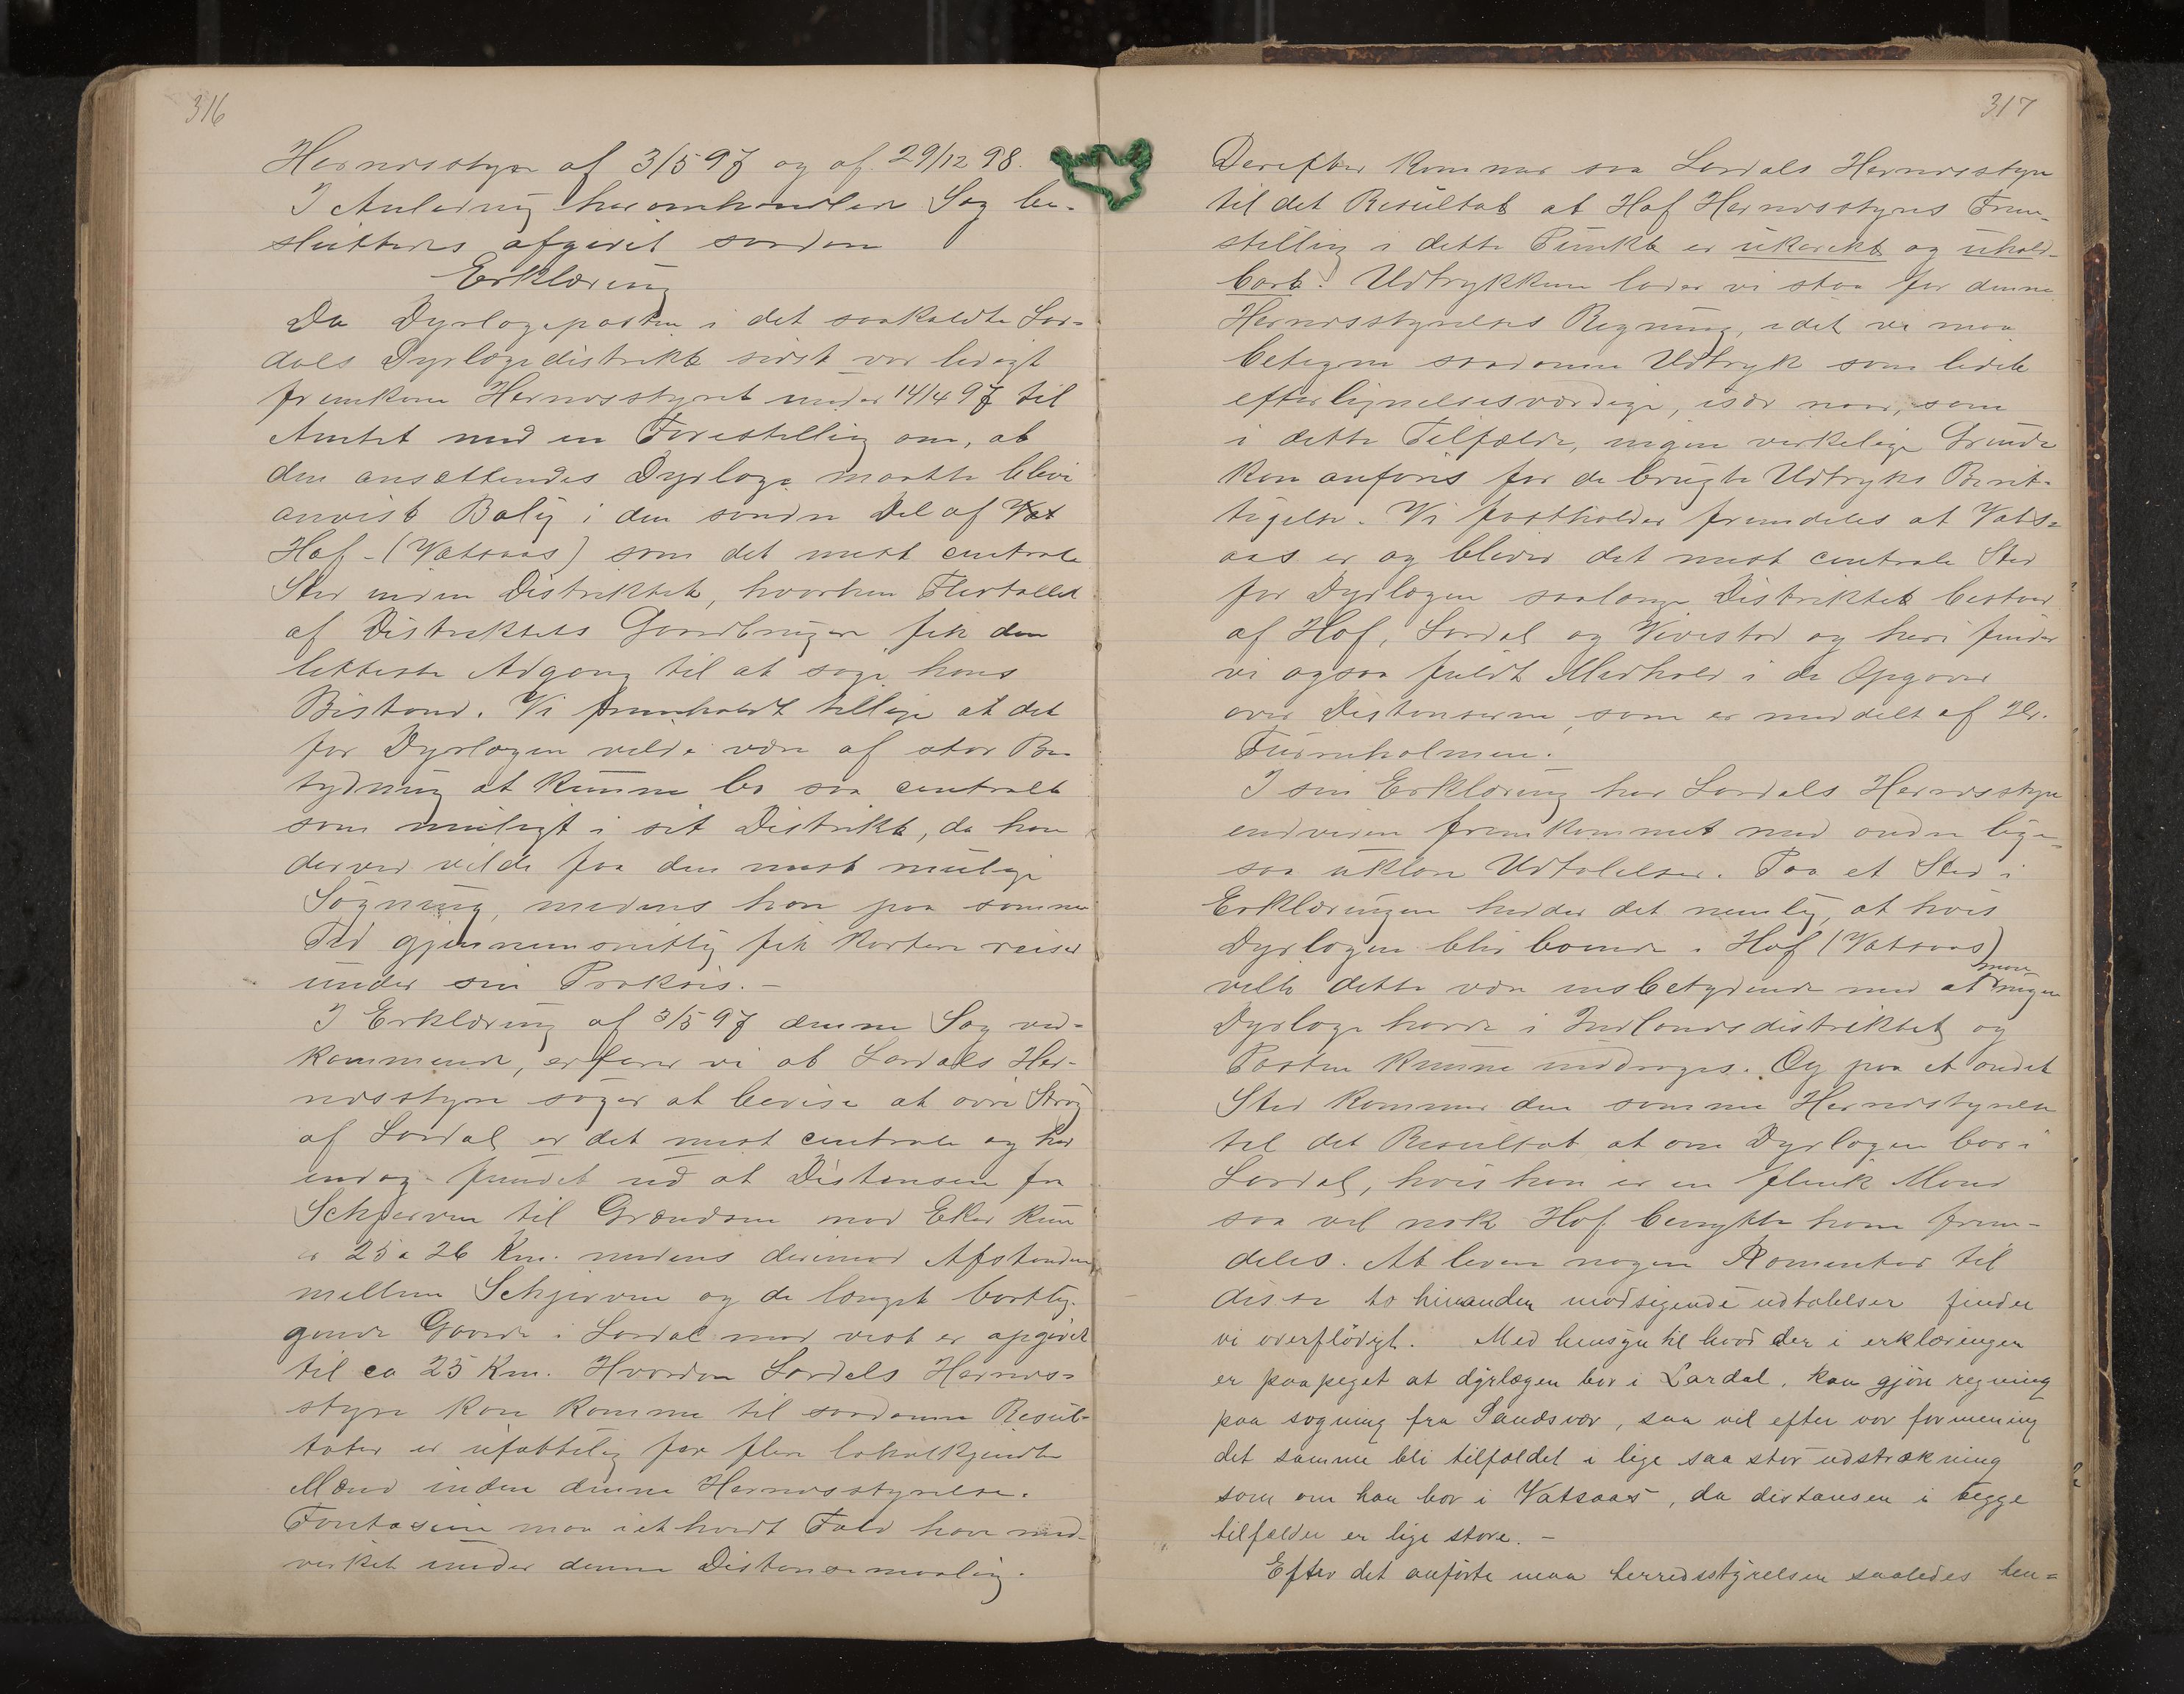 316
Herredsstyre af 3/5 97 og af 29/12 98.
I Anledning heromhandlede Sag be-
sluttedes afgivet saadan
Erklæring
Da Dyrlægeposten i det saakaldte Lar-
dals Dyrlægedistrikt sidst var ledigt
fremkom Herredsstyret under 14/4 97 til
Amtet med en Forestilling om, at
den ansættendes Dyrlæge maatte blive
anvist Bolig i den søndre Del af Vat
Hof - (Vatsaas) som det mest centrale
Sted inden Distriktet, hvorhen Flertallet
af Distriktets Gaardbrugere fik den
letteste Adgang til at søge hans
Bistand. Vi fremholdt tillige at det
for Dyrlægen vilde være af stor Be-
tydning at kunne bo saa centralt
som muligt i sit Distrikt, da han
derved vilde faa den mest mulige
Søgning, medens han paa samme
Tid gjennemsnitlig fik kortere reiser
under sin Praksis. -
I Erklæring af 3/5 97 denne Sag ved-
kommende, erfarer vi at Lardals Her-
redsstyre søger at bevise at øvre Strøg
af Lardal er det mest centrale og har
endog fundet ud at Distansen fra
Schjerven til Grændsen mod Eker kun
er 25 a 26 Km. medens derimod Afstanden
mellem Schjerven og de længst bortlig-
gende Gaarde i Lardal mod vest er opgivet
til ca 25 Km. Hvordan Lardals Herreds-
styre kan komme til saadanne Resul-
tater er ufattelig for flere lokalkjendte
Mænd inden denne Herredsstyrelse.
Fantasien maa i et hvert Fald have med-
virket under denne Distansemaaling.
317
Derefter kommer saa Lardals Herredsstyre
til det Resultat at Hof Herredsstyres Frem-
stilling i dette Punkt er ukorrekt og uhold-
bart. Udtrykkene lader vi staa for denne
Herredsstyrelses Regning, idet vi maa
betegne saadanne Udtryk som lidet
efterlignelsesværdige, især naar, som
i dette Tilfælde, ingen virkelige Grunde
kan anføres for de brugte Udtryks Beret-
tigelse. Vi fastholder fremdeles at Vats-
aas er og bliver det mest centrale Sted
for Dyrlægen saalænge Distriktet bestaar
af Hof, Lardal og Vivestad og heri finder
vi ogsaa fuldt Medhold i de Opgaver
over Distanserne, som er meddelt af Hr.
Fuerenholmen.
I sin Erklæring har Lardals Herredsstyre
endvidere fremkommet med andre lige-
saa uklare Udtalelser. Paa et Sted i
Erklæringen heder det nemlig, at hvis
Dyrlægen blir boende i Hof (Vatsaas)
vilde dette være ensbetydende med at man ingen
Dyrlæge havde i Indlandsdistriktet og
Posten kunne inddrages. Og paa et andet
Sted kommer den samme Herredsstyrelse
til det Resultat at om Dyrlægen bor i
Lardal, hvis han er en flink Mand
saa vil nok Hof benytte ham frem-
deles. At levere nogen Komentar til
disse to hinanden modsigende udtalelser finder
vi overflødigt. Med hensyn til hvad der i erklæringen
er paapeget at dyrlægen bor i Lardal, kan gjøre regning
paa søgning fra Sandsvær, saa vil efter vor formening
det samme bli tilfældet i lige saa stor udstrækning
som om han bor i Vatsaas, da distansen i begge
tilfælder er lige store. -
Efter det anførte maa herredsstyrelsen saaledes hen=